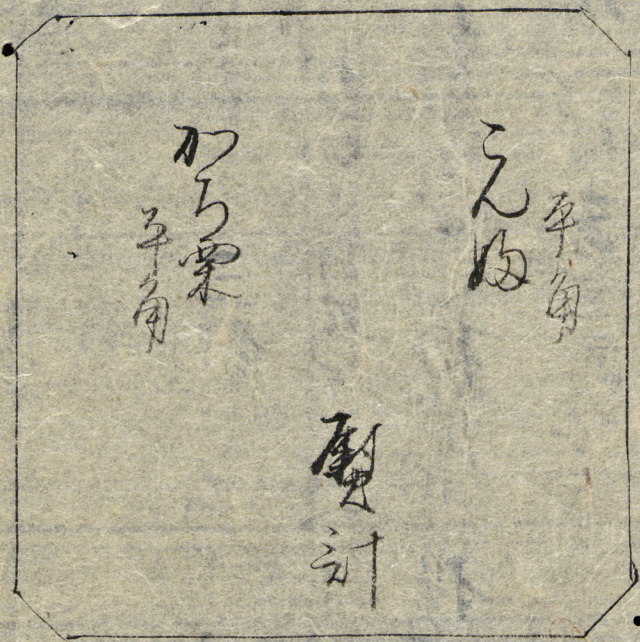 平角
こん婦
計
かち栗
平角